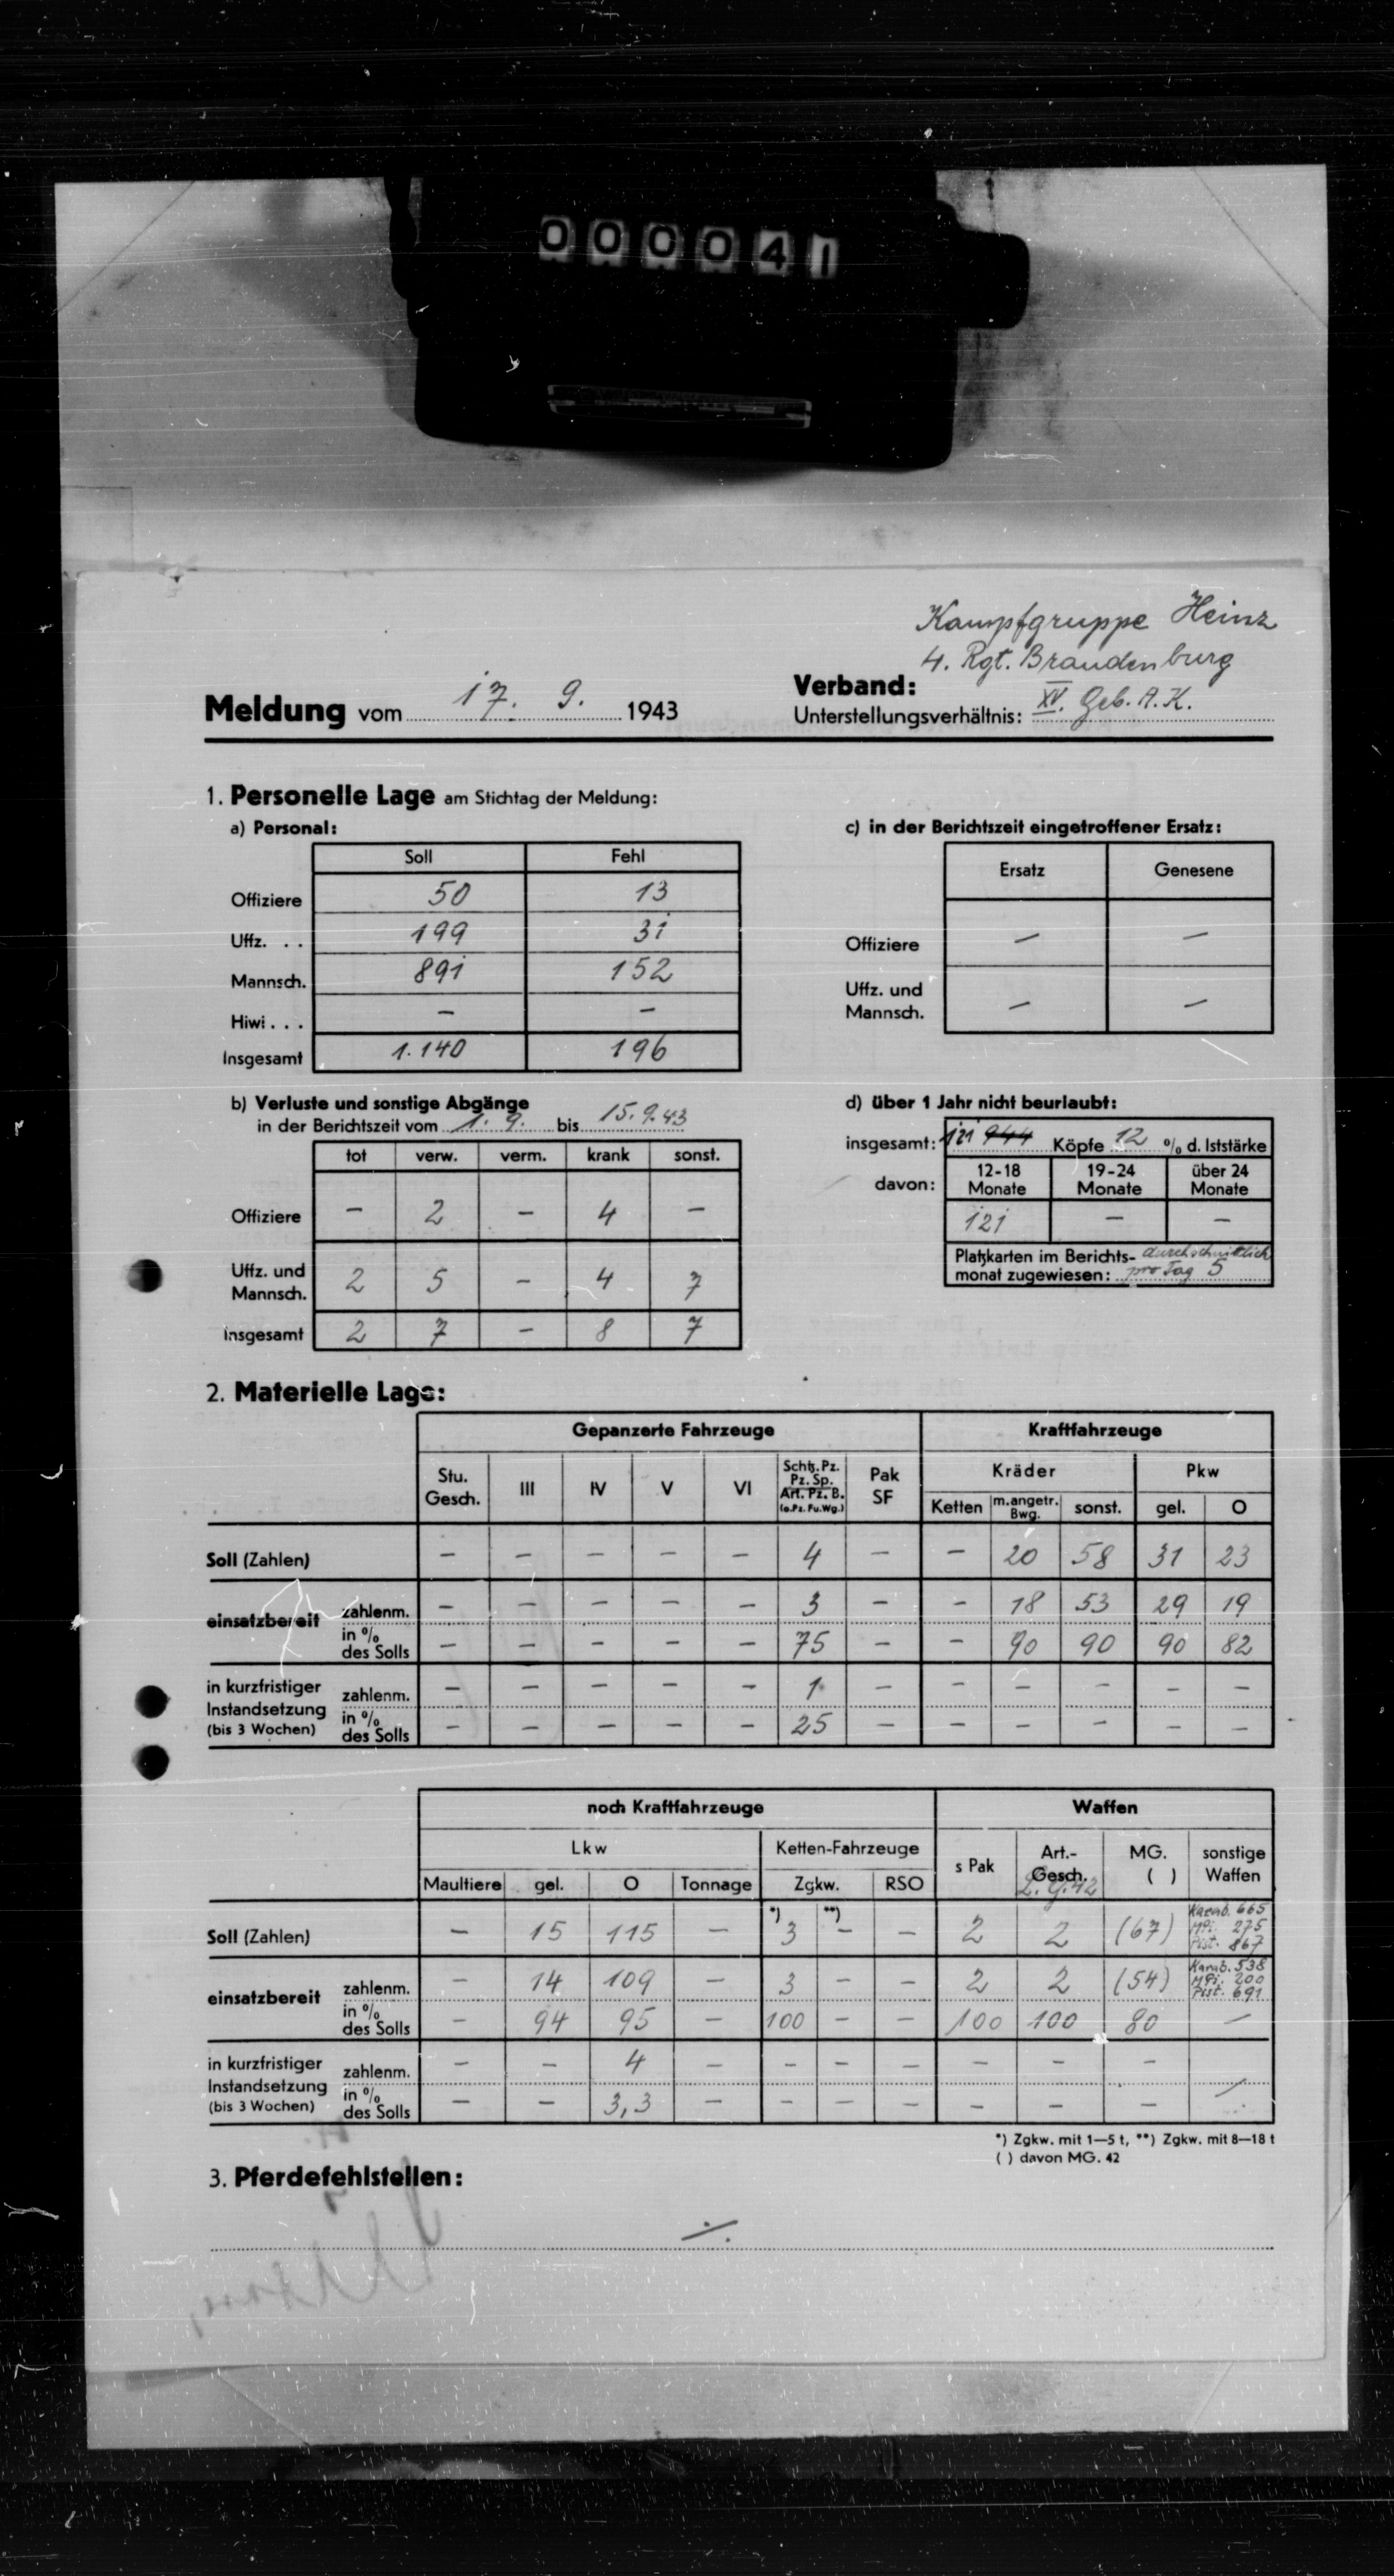 000041
Kampfgruppe Heinz
4. Rgt. Brandenburg
Meldung vom 17. 9. 1943
Verband:
Unterstellungsverhältnis: XV. Geb. A.K.
1. Personelle Lage am Stichtag der Meldung:
a) Personal:
Soll Fehl
Offiziere 50 13
Uffz. . . 199 31
Mannsch. 891 152
Hiwi . . . — —
Insgesamt 1.140 196
c) in der Berichtszeit eingetroffener Ersatz:
Ersatz Genesene
Offiziere — —
Uffz. und
Mannsch. — —
b) Verluste und sonstige Abgänge
in der Berichtszeit vom 1. 9. bis 15.9.43
tot verw. verm. krank sonst.
Offiziere — 2 — 4 —
Uffz. und
Mannsch. 2 5 — 4 7
Insgesamt 2 7 — 8 7
d) über 1 Jahr nicht beurlaubt:
insgesamt: 121 944 Köpfe 12 % d. Iststärke
davon: 12-18 Monate 19-24 Monate über 24 Monate
121 — —
Platzkarten im Berichts- durchschnittlich
monat zugewiesen: pro Tag 5
2. Materielle Lage:
Gepanzerte Fahrzeuge Kraftfahrzeuge
Stu. Gesch. III IV V VI Schtz. Pz. Pz. Sp. Art. Pz. B. (o. Pz. Fu. Wg.) Pak SF Kräder Pkw
Ketten m. angetr. Bwg. sonst. gel. O
Soll (Zahlen) — — — — — 4 — — 20 58 31 23
einsatzbereit zahlenm. — — — — — 3 — — 18 53 29 19
in % des Solls — — — — — 75 — — 90 90 90 82
in kurzfristiger Instandsetzung (bis 3 Wochen) zahlenm. — — — — — 1 — — — — — —
in % des Solls — — — — — 25 — — — — — —
noch Kraftfahrzeuge Waffen
Lkw Ketten-Fahrzeuge s Pak Art.-Gesch. L.G.42 MG. ( ) sonstige Waffen
Maultiere gel. O Tonnage Zgkw. RSO
*) **)
Soll (Zahlen) — 15 115 — 3 — — 2 2 (67) Karab. 665 MPi. 275 Pist. 867
einsatzbereit zahlenm. — 14 109 — 3 — — 2 2 (54) Karab. 538 MPi. 200 Pist. 691
in % des Solls — 94 95 — 100 — — 100 100 80 —
in kurzfristiger Instandsetzung (bis 3 Wochen) zahlenm. — — 4 — — — — — — —
in % des Solls — — 3,3 — — — — — — — —
*) Zgkw. mit 1—5 t, **) Zgkw. mit 8—18 t
( ) davon MG. 42
3. Pferdefehlstellen: